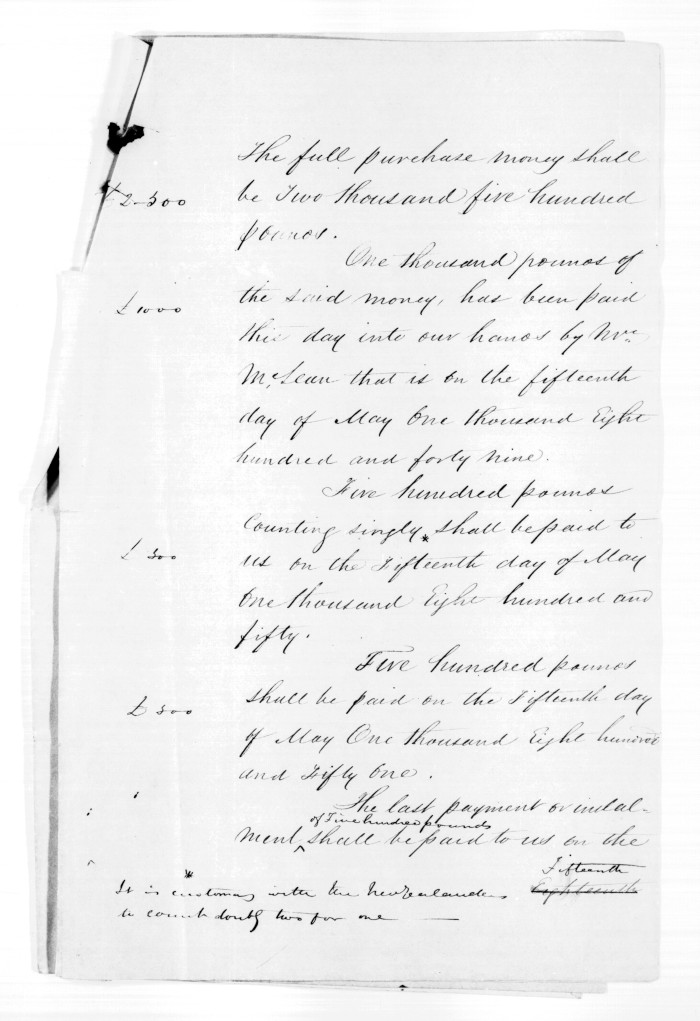 The full purchase money shall
£2-500 be Two thousand five hundred
pounds.
One thousand pounds of
£1000 the said money, has been paid
this day into our hands by Mr.
McLean that is on the fifteenth
day of May One thousand Eight
hundred and forty nine.
Five hundred pounds
Counting singly * shall be paid to
£500 us on the Fifteenth day of May
One thousand Eight hundred and
fifty.
Five hundred pounds
shall be paid on the Fifteenth day
£500 of May One thousand Eight hundred
and Fifty One.
The last payment or instal-
of Five hundred pounds
ment ^ shall be paid to us on the
Fifteenth
Eighteenth
* It is customy with the New Zealanders
to count doubly two for one —